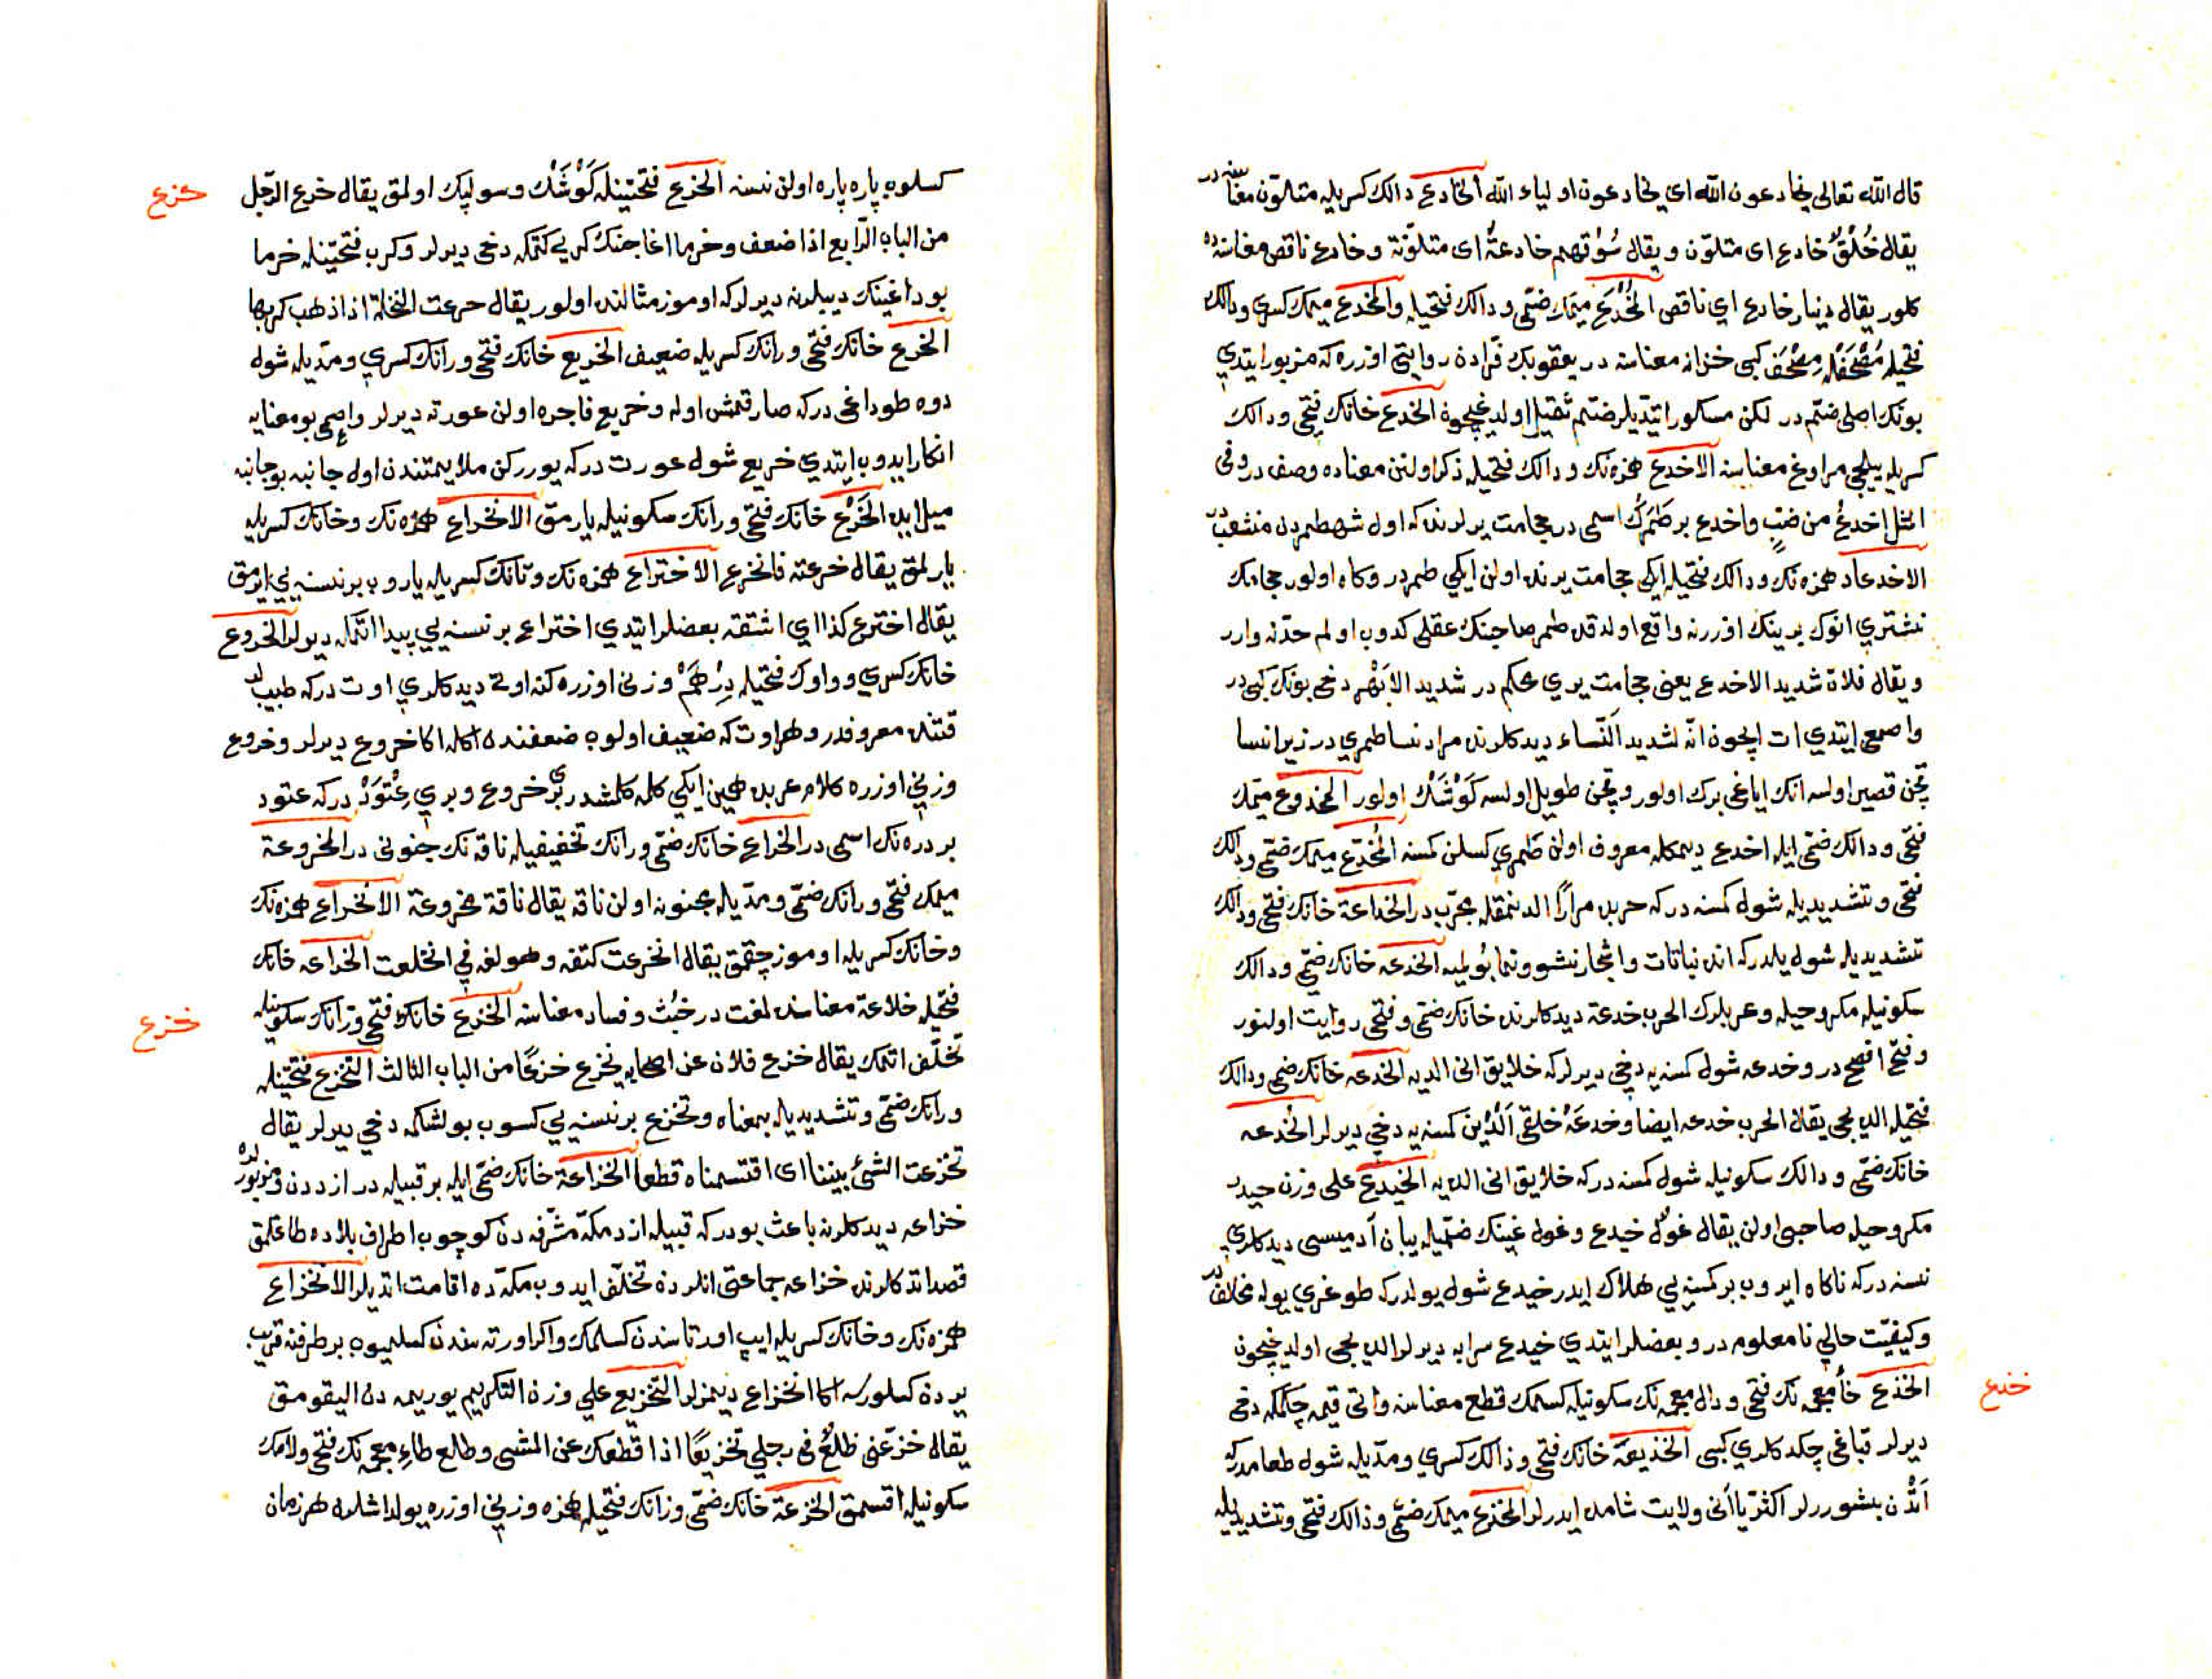 قال الله تعالى يخادعون الله اي يخادعون اولياء الله الخادع دالك كسريله متلوّن معناسنه در
يقال خُلْقٌ خادع اى متلوّن ويقال سُوْقهم خادعةٌ اى متلوّنة وخادع ناقص معناسنه ده
كلور يقال دينار خادع اي ناقص المُخْدَع ميمك ضمّى ودالك فتحيله والمخدع ميمك كسرى ودالك
فتحيله مُصْحَفْله مِصْحَف كبى خزانه معناسنه در يعقوبك فرّادن روايتى اوزره كه مزبور ايتدي
بونك اصلى ضمّدر لكن مسكور ايتديلر ضمّه ثقيل اولديغيچون الخدع خانك فتحى ودالك
كسريله ييلجى مراوغ معناسنه الاخدع همزه نك ودالك فتحيله ذكر اولنن معناده وصفدر وفى
المثل اخدعُ من ضبٍّ واخدع بر طَمَرك اسمى در حجامت يرلرنده كه اول شهطمردن منشعبدر
الاخدعان همزه نك ودالك فتحيله ايكى حجامت يرنده اولن ايكي طمردر وكاه اولور حجامك
نشتري انوك برينك اوزرنه واقع اولدقده طمر صاحبنك عقلى كدوب اولم حدّنه وارر
ويقال فلان شديد الاخدع يعنى حجامت يري محكمدر شديد الابْهَر دخى بونك كبى در
واصمعى ايتدي ات ايچون انّه لشديد النَّساء ديدكلرنده مراد نسا طمري در زيرا نسا
قچن قصير اولسه انك اياغى برك اولور وقچن طويل اولسه كَوْشَكْ اولور المخدوع ميمك
فتحى ودالك ضمّى ايله اخدع ديمكله معروف اولن طمري كسلن كمسنه المُخدّع ميمك ضمّى ودالك
فتحى وتشديديله شول كمسنه دركه حربده مرارًا الدنمقله مجرّبدر الخدّاعة خانك فتحى ودالك
تشديديله شول يلدركه انده نباتات واشجار نشو ونما بُولميه الخدعه خانك ضمّى ودالك
سكونيله مكر وحيله وعربلرك الحرب خدعة ديدكلرنده خانك ضمّى وفتحى روايت اولنور
وفتح افصحدر وخدعه شول كمسنه يه دخي ديرلركه خلايق انى الديه الخدعه خانك ضمى ودالك
فتحيله الديجى يقال الحرب خدعه ايضا وخدعَةٌ خلقى اَلْدَين كمسنه يه دخي ديرلر الخُدعه
خانك ضمّى ودالك سكونيله شول كمسنه دركه خلايق انى الديه الخيدع على وزن حيدر
مكر وحيله صاحبى اولن يقال غولٌ خيدع وغول غينك ضمّيله بيابان آدميسى ديدكلري
نسنه دركه ناكاه ايدوب بر كمسنه يي هلاك ايدر خيدع شول يولدركه طوغري يوله مخالفدر
وكيفيّت حالي نامعلومدر وبعضلر ايتدي خيدع سرابه ديرلر الديجى اولديغيچون
الخذع خأ معجمه نك فتحى وذال معجمه نك سكونيله كسمك قطع معناسنه واتى قيمه چكمكه دخى
ديرلر قباغى چكدكلري كبى الخذيعة خانك فتحى وذالك كسري ومدّيله شول طعامدركه
اَتْدن پشوررلر اكثريّا انى ولايت شامده ايدرلر المخذّع ميمك ضمّى وذالك فتحى وتشديديله
خذع
كسلوب پاره پاره اولن نسنه الخرع فتحتينله كَوْشَك وسولپك اولمق يقال خرع الرّجل
من الباب الرّابع اذا ضعف وخرما اغاجنك كربى كتمكه دخى ديرلر وكرب فتحتينله خرما
بوداغينك ديبلرنه ديرلركه اوموز مثالنده اولور يقال خرعت النخلة اذا ذهب كربها
الخرع خانك فتحى ورانك كسريله ضعيف الخريع خانك فتحى ورانك كسري ومدّيله شول
دوه طوداغى دركه صارقمش اوله وخريع فاجره اولن عورته ديرلر واصمعى بو معنايه
انكار ايدوب ايتدي خريع شول عورت دركه يوررکن ملايمتندن اول جانبه بو جانبه
ميل ايده الخَرْع خانك فتحى ورانك سكونيله يارمق الانخراع همزه نك وخانك كسريله
يارلمق يقال خرعته فانخرع الاختراع همزه نك وتانك كسريله ياروب بر نسنه يي ايرمق
يقال اخترع كذا اي اشتقّه بعضلر ايتدي اختراع بر نسنه يي پيدا اتمكه ديرلر الخروع
خانك كسري وواوك فتحيله دِرْهَمْ وزنى اوزره كنه اوتى ديدكلري اوت دركه طبيبلر
قتنده معروفدر وهر اوت كه ضعيف اولوب ضعفنده اكله اكا خروع ديرلر وخروع
وزني اوزره كلام عربده همين ايكي كلمه كلمشدر بري خروع وبري عِتْوَدْ دركه عتود
بر دره نك اسمى در الخراع خانك ضمّى ورانك تخفيفيله ناقه نك جنونى در المخروعة
ميمك فتحى ورانك ضمّى ومدّيله مجنونه اولن ناقه يقال ناقة مخروعة الانخراع همزه نك
وخانك كسريله اوموز چقمق يقال انخرعت كتفه وهو لغه في انخلعت الخراعه خانك
فتحيله خلاعة معناسنده لغت در خُبُث وفساد معناسنه الخزع خانك فتحى وزانك سكونيله
تخلّف اتمك يقال خزع فلان عن اصحابه يخزع خزعًا من الباب الثالث التخزع فتحتينله
وزانك ضمّى وتشديديله بمعناه وتخزع بر نسنه يي كسوب بولشمكه دخي ديرلر يقال
تخزعت الشئ بيننا اى اقتسمناه قطعا الخزاعة خانك ضمّى ايله بر قبيله در ازددن ومزبورلره
خزاعه ديدكلرنه باعث بودركه قبيله ازد مكّه مشرّفه دن كوچوب اطراف بلاده طاغلمق
قصد اتدكلرنده خزاعه جماعتى انلردن تخلّف ايدوب مكّه ده اقامت اتديلر الانخزاع
همزه نك وخانك كسريله ايپ اورتاسندن كسلمك واكر اورتهسندن كسلميوب بر طرفنه قريب
يردن كسلورسه اكا انخزاع ديمزلر التخزيع علي وزن التكريم يوريمه دن اليقومق
يقال خزّعنى ظلعٌ فى رجلي تخزيعًا اذا قطعك عن المشى وظلع ظاء معجمه نك فتحى ولامك
سكونيله اقسمق الخزعة خانك ضمّى وزانك فتحيله همزه وزني اوزره يولداشلره هر زمان
خرع
خزع